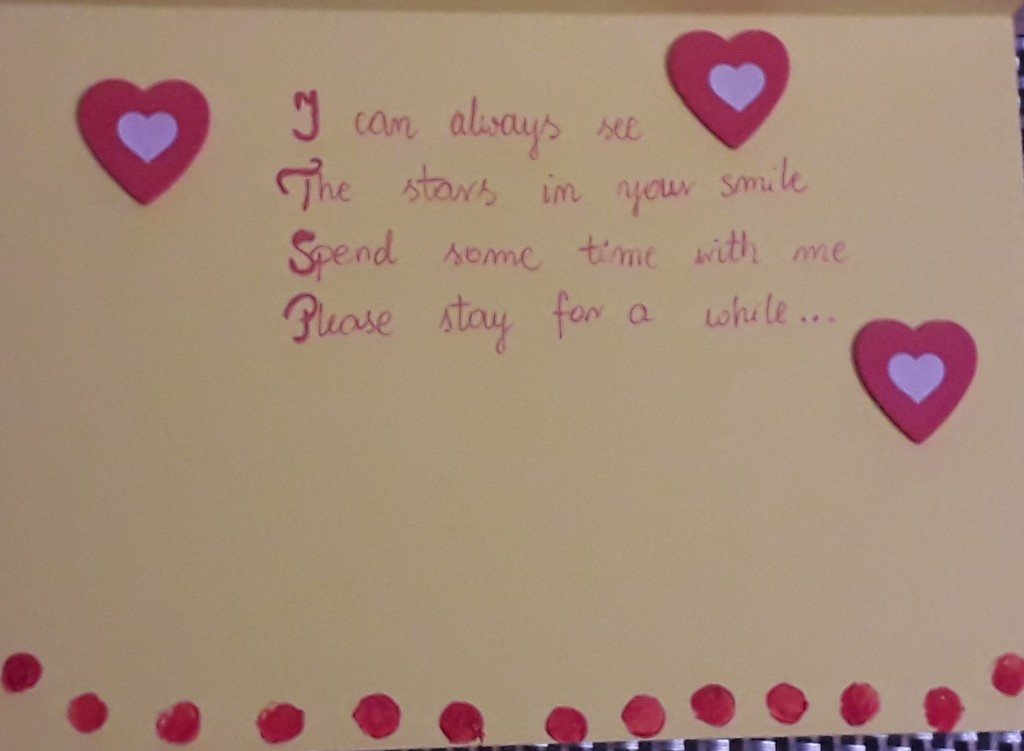 I can always see
The stars in your smile
Spend some time with me
Please stay for a while...